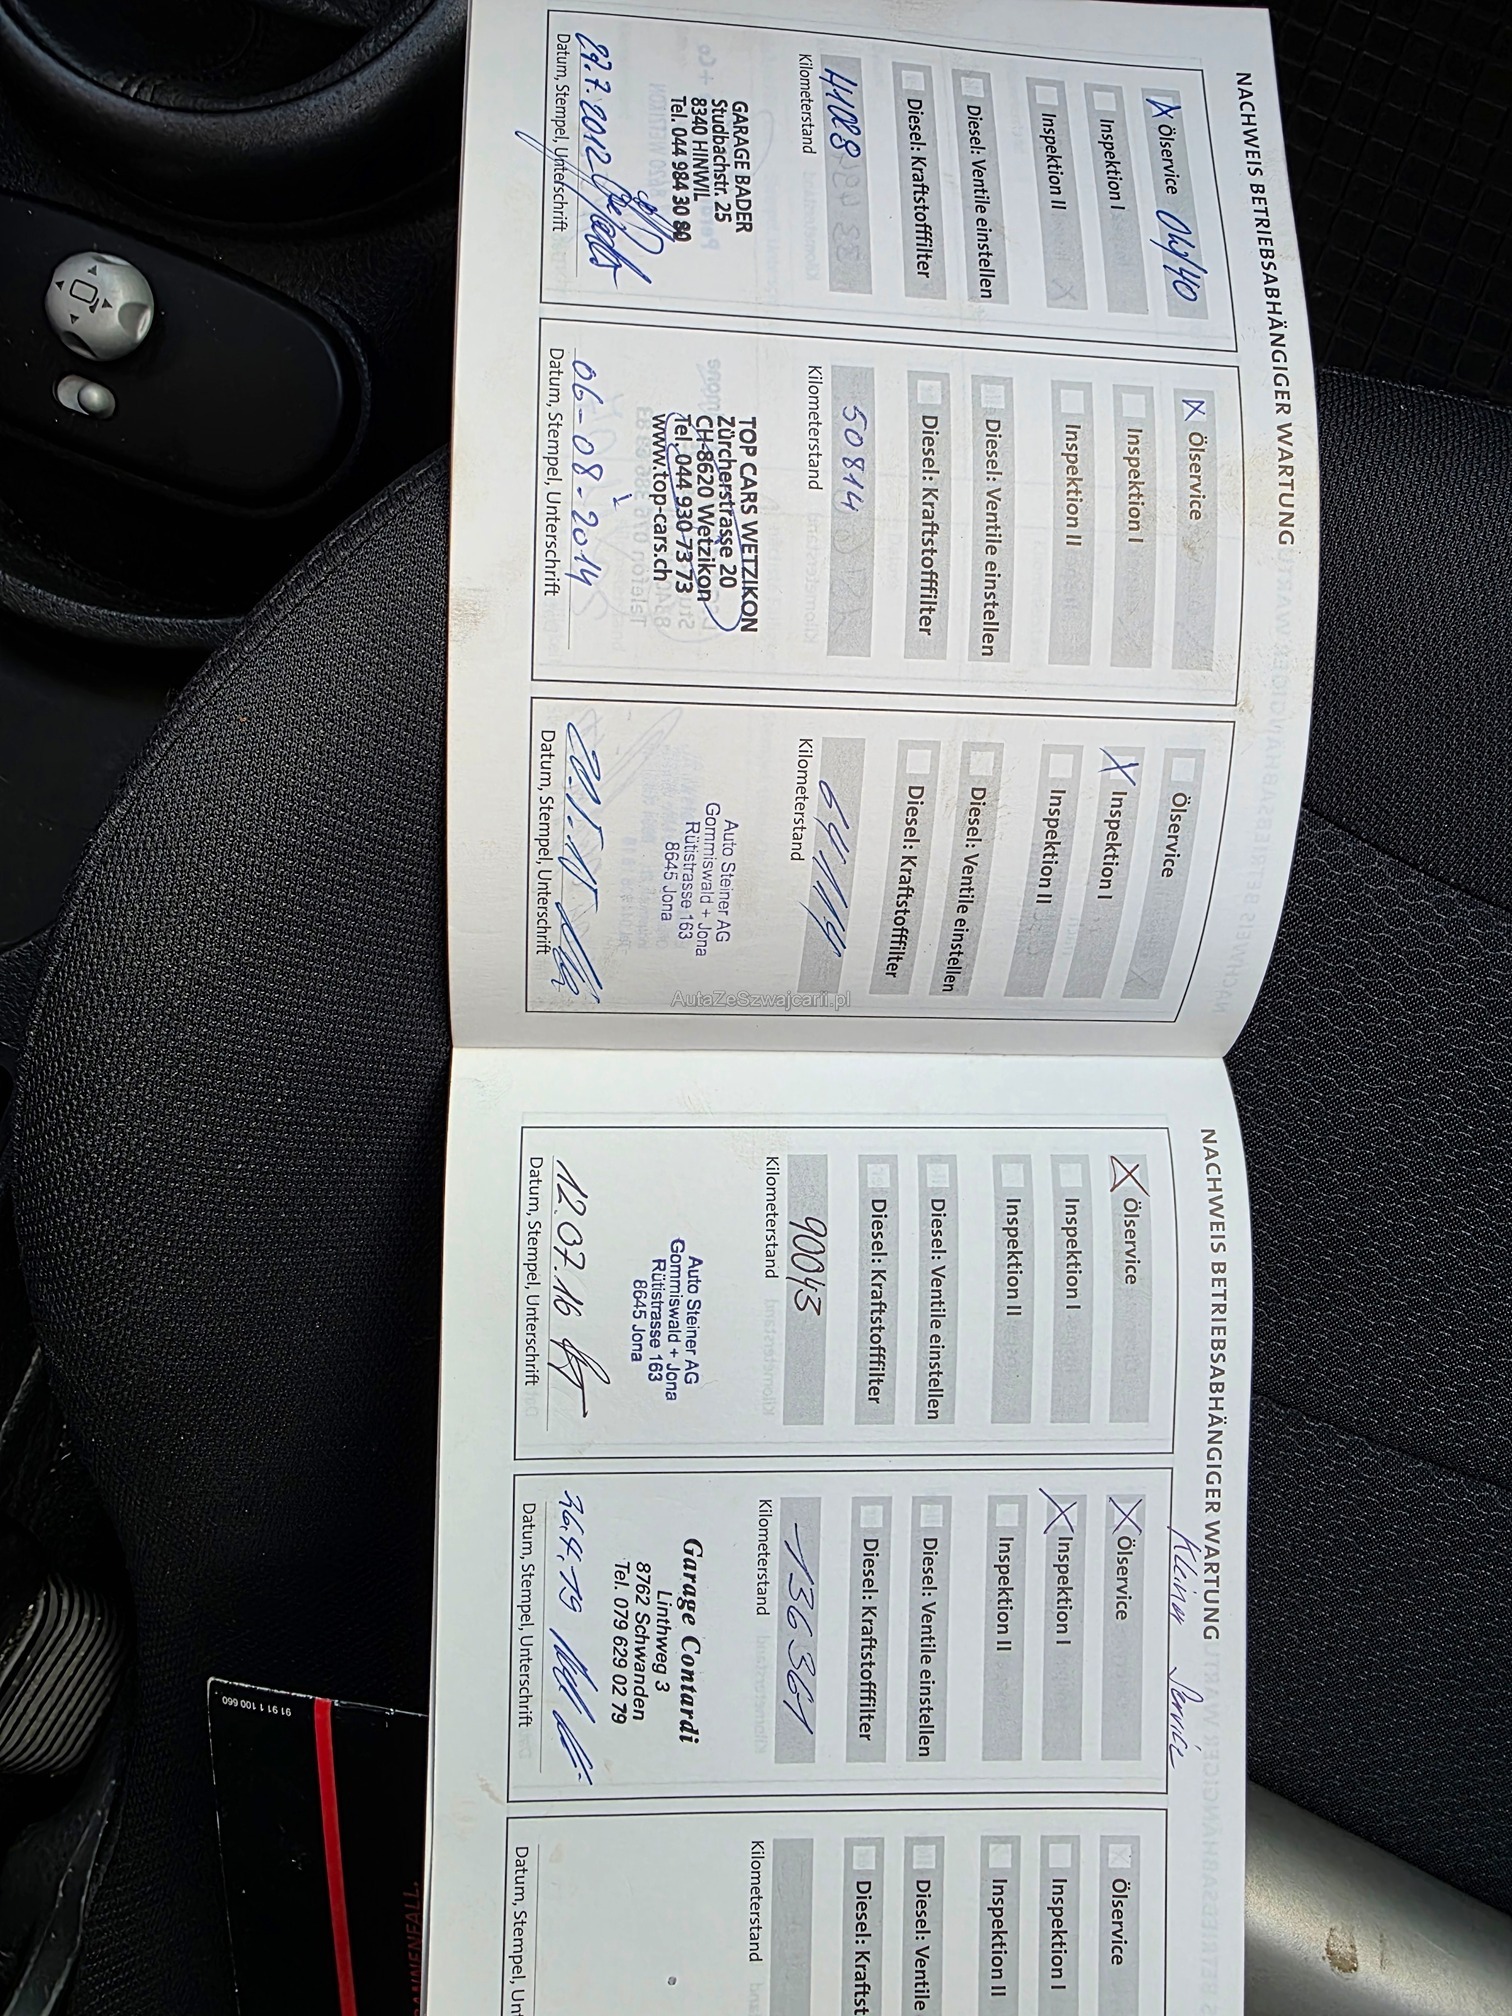 NACHWEIS BETRIEBSABHÄNGIGER WARTUNG
X Ölservice
Inspektion I
Inspektion II
Diesel: Ventile einstellen
Diesel: Kraftstofffilter
Kilometerstand
GARAGE BADER
Studbachstr. 25
8340 HINWIL
Tel. 044 984 30 80
27.7.2012
Datum, Stempel, Unterschrift
X Ölservice
Inspektion I
Inspektion II
Diesel: Ventile einstellen
Diesel: Kraftstofffilter
50814
Kilometerstand
TOP CARS WETZIKON
Zürcherstrasse 20
CH-8620 Wetzikon
Tel. 044 930 73 73
www.top-cars.ch
06-08-2014
Datum, Stempel, Unterschrift
Ölservice
X Inspektion I
Inspektion II
Diesel: Ventile einstellen
Diesel: Kraftstofffilter
Kilometerstand
Auto Steiner AG
Gommiswald + Jona
Rütistrasse 163
8645 Jona
Datum, Stempel, Unterschrift
AutaZeSzwajcarii.pl
NACHWEIS BETRIEBSABHÄNGIGER WARTUNG
X Ölservice
Inspektion I
Inspektion II
Diesel: Ventile einstellen
Diesel: Kraftstofffilter
90043
Kilometerstand
Auto Steiner AG
Gommiswald + Jona
Rütistrasse 163
8645 Jona
12.07.16
Datum, Stempel, Unterschrift
Kleiner Service
X Ölservice
X Inspektion I
Inspektion II
Diesel: Ventile einstellen
Diesel: Kraftstofffilter
136361
Kilometerstand
Garage Contardi
Linthweg 3
8762 Schwanden
Tel. 079 629 02 79
26.4.19
Datum, Stempel, Unterschrift
Ölservice
Inspektion I
Inspektion II
Diesel: Ventile
Diesel: Kraftst
Kilometerstand
Datum, Stempel, Unt
91 91 1 100 660